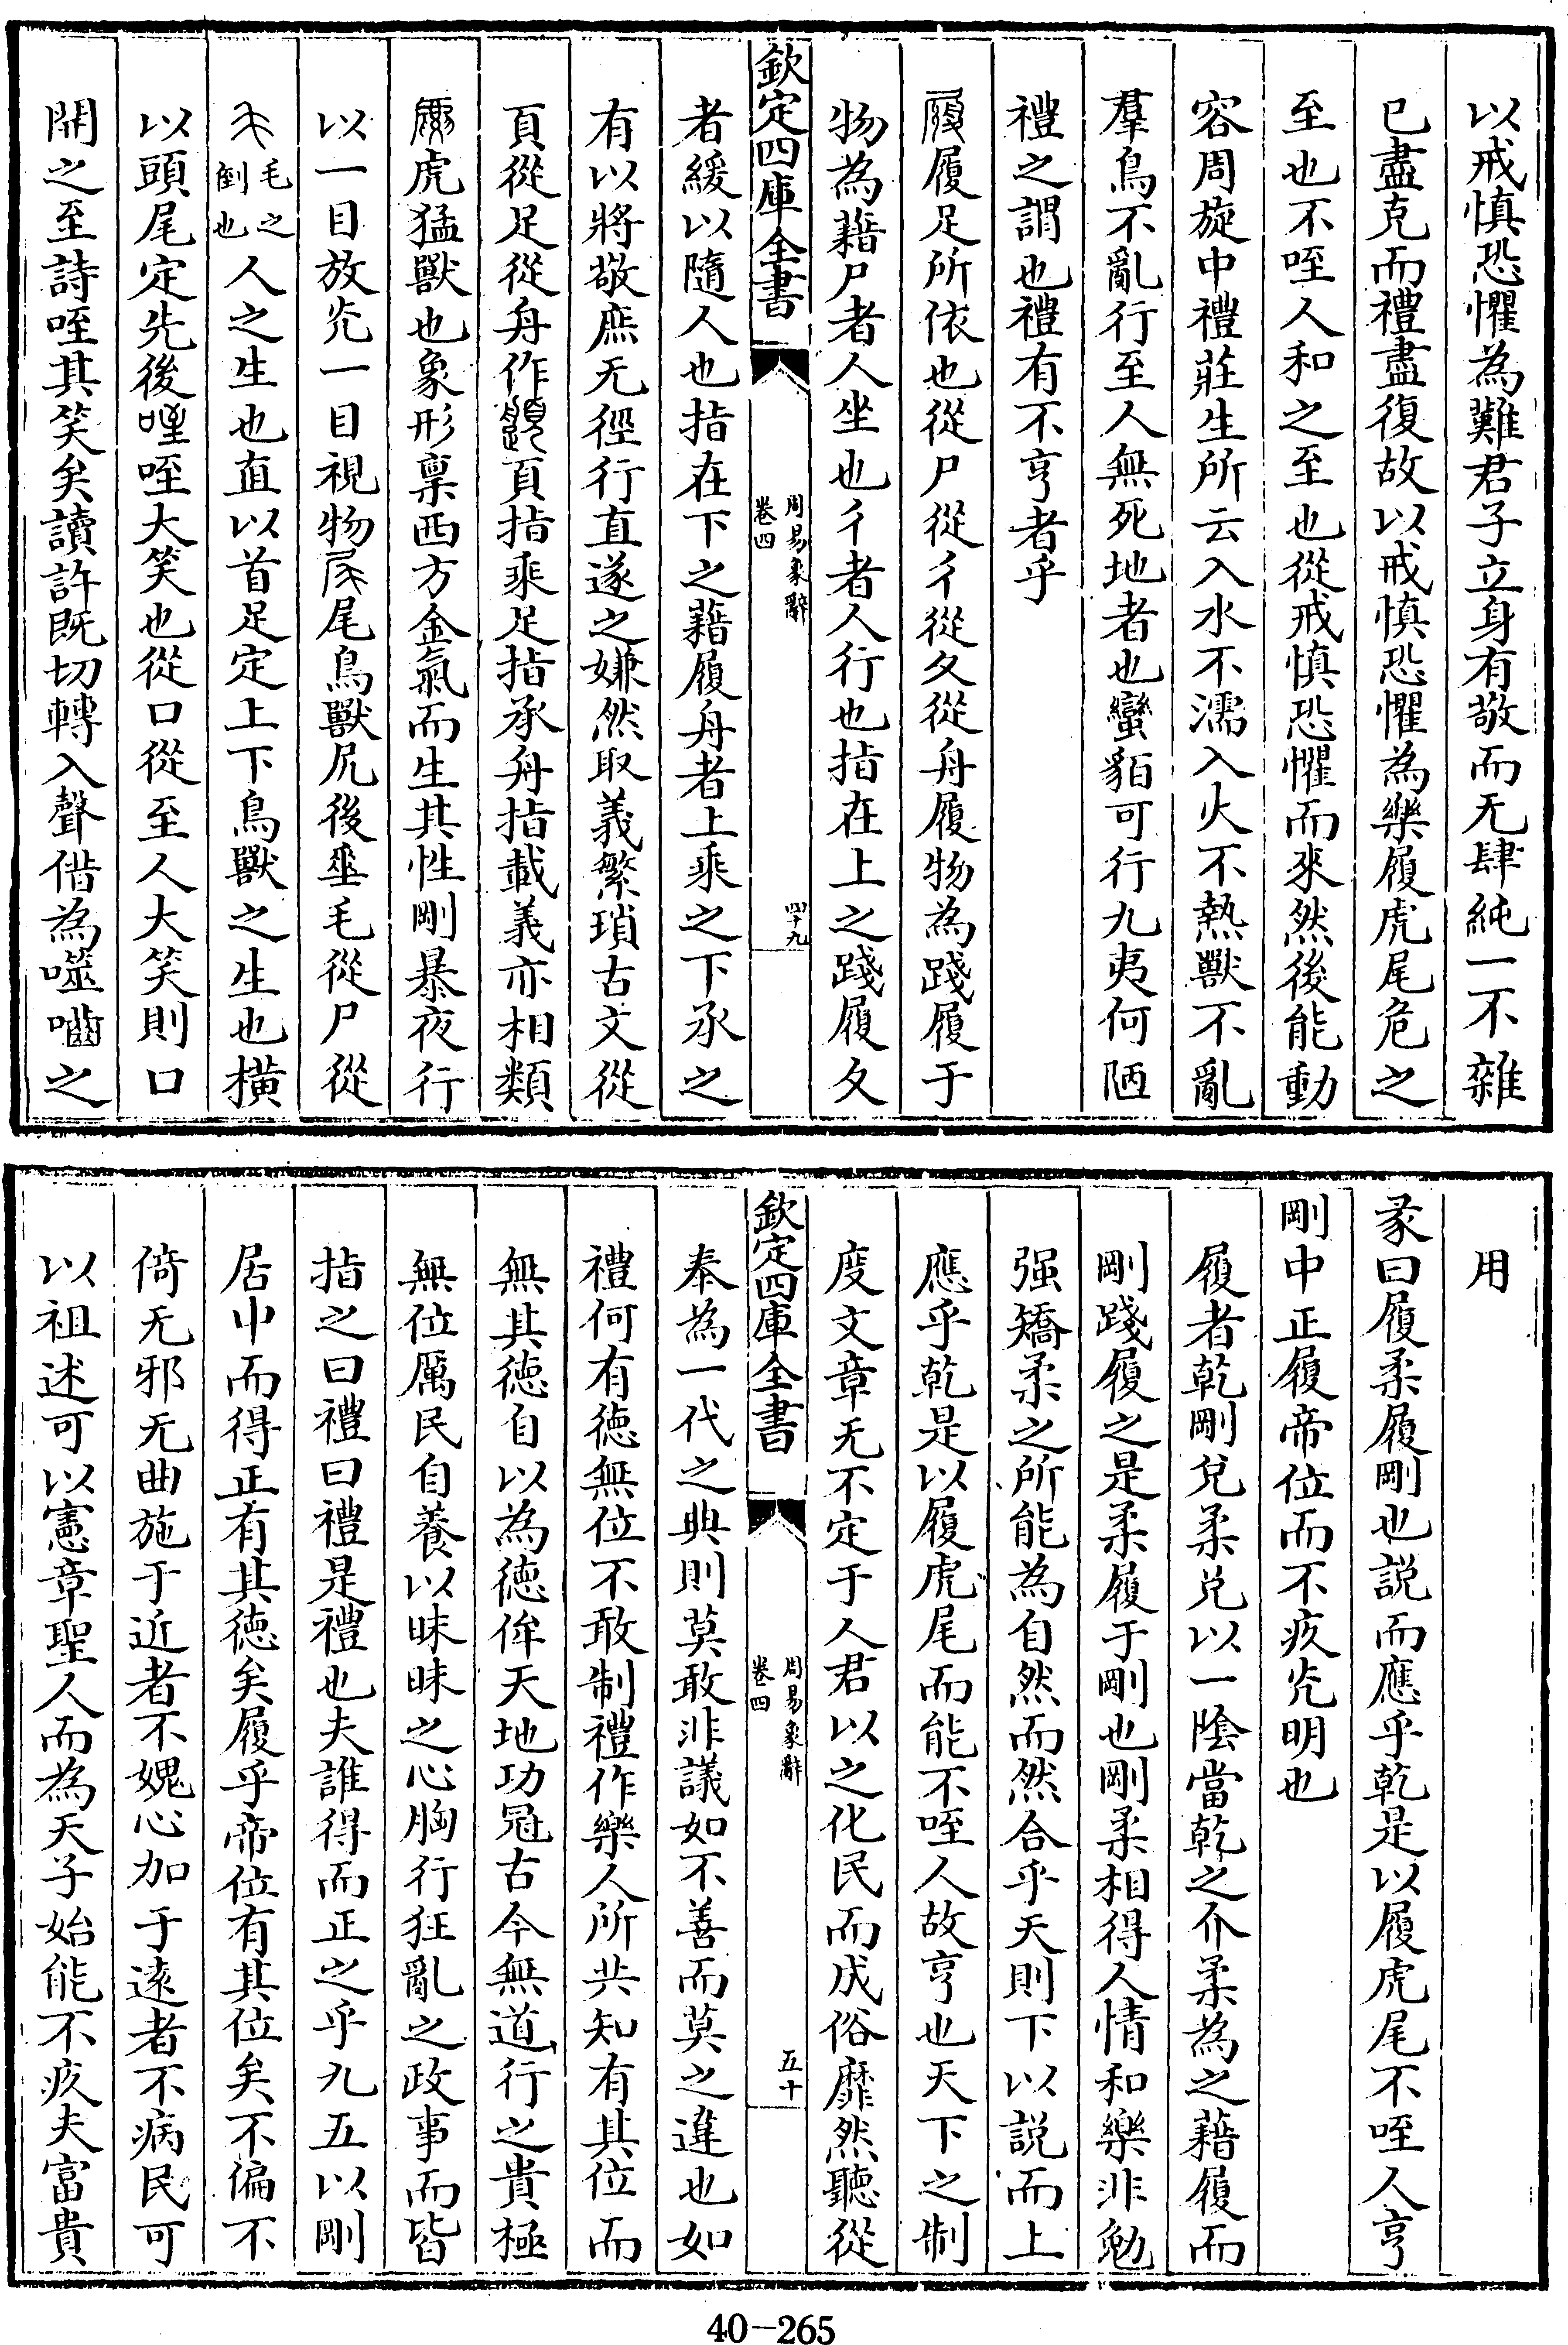 以戒慎恐懼為難君子立身有敬而无肆純一不雜
已盡克而禮盡復故以戒慎恐懼為樂履虎尾危之
至也不咥人和之至也從戒慎恐懼而來然後能動
容周旋中禮莊生所云入水不濡入火不熱獸不亂
羣鳥不亂行至人無死地者也蠻貊可行九夷何陋
禮之謂也禮有不亨者乎
履足所依也從尸從彳從夂從舟履物為踐履于
物為藉尸者人坐也彳者人行也指在上之踐履夂
欽定四庫全書
周易象辭
卷四
四十九
者緩以隨人也指在下之藉履舟者上乘之下承之
有以將敬庶无徑行直遂之嫌然取義繁瑣古文從
頁從足從舟作頁指乘足指承舟指載義亦相類
虎猛獸也象形稟西方金氣而生其性剛暴夜行
以一目放光一目視物尾鳥獸尻後垂毛從尸從
毛之倒也人之生也直以首足定上下鳥獸之生也橫
以頭尾定先後咥大笑也從口從至人大笑則口
開之至詩咥其笑矣讀許既切轉入聲借為噬嚙之
用
彖曰履柔履剛也說而應乎乾是以履虎尾不咥人亨
剛中正履帝位而不疚光明也
履者乾剛兌柔兌以一陰當乾之介柔為之藉履而
剛踐履之是柔履于剛也剛柔相得人情和樂非勉
强矯柔之所能為自然而然合乎天則下以說而上
應乎乾是以履虎尾而能不咥人故亨也天下之制
度文章无不定于人君以之化民而成俗靡然聽從
欽定四庫全書
周易象辭
卷四
五十
奉為一代之典則莫敢非議如不善而莫之違也如
禮何有德無位不敢制禮作樂人所共知有其位而
無其德自以為德侔天地功冠古今無道行之貴極
無位厲民自養以昧昧之心胸行狂亂之政事而皆
指之曰禮曰禮是禮也夫誰得而正之乎九五以剛
居中而得正有其德矣履乎帝位有其位矣不偏不
倚无邪无曲施于近者不媿心加于遠者不病民可
以祖述可以憲章聖人而為天子始能不疚夫富貴
40-265